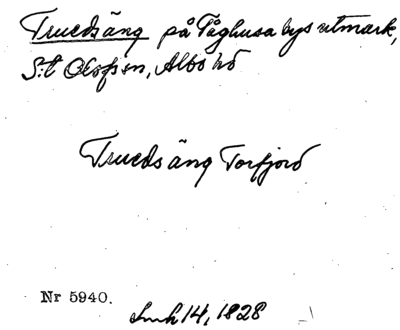 Truedsäng på Tåghusa bys utmark,
S:t Olofs sn, Albo hd
Truedsäng Torfjord
Nr 5940.
Lmh 14, 1828